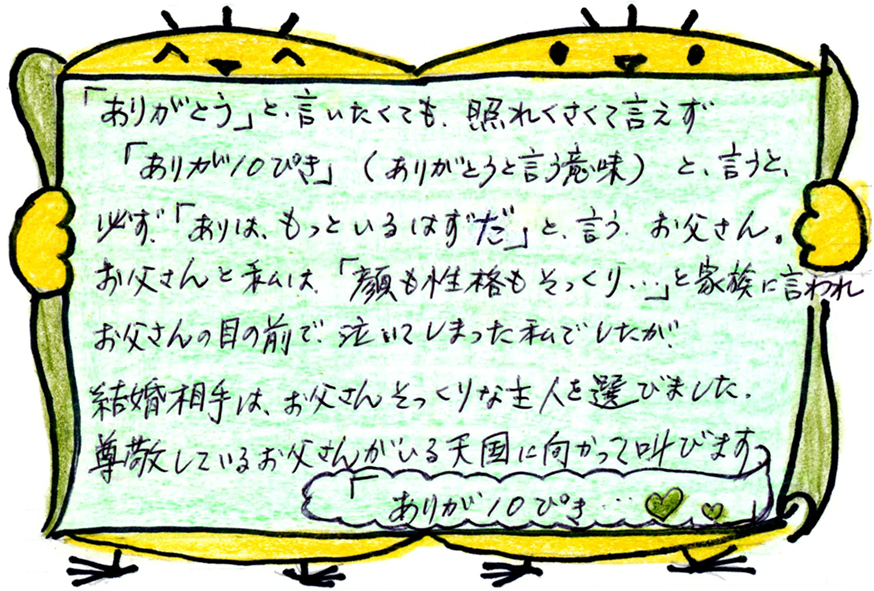 「ありがとう」と、言いたくても、照れくさくて言えず
「ありが10ぴき」（ありがとうと言う意味）と、言うと、
必ず、「ありは、もっといるはずだ」と、言う、お父さん。
お父さんと私は、「顔も性格もそっくり…」と家族に言われ
お父さんの目の前で、泣いてしまった私でしたが、
結婚相手は、お父さんそっくりな主人を選びました。
尊敬しているお父さんがいる天国に向かって叫びます。
「ありが10ぴき…」